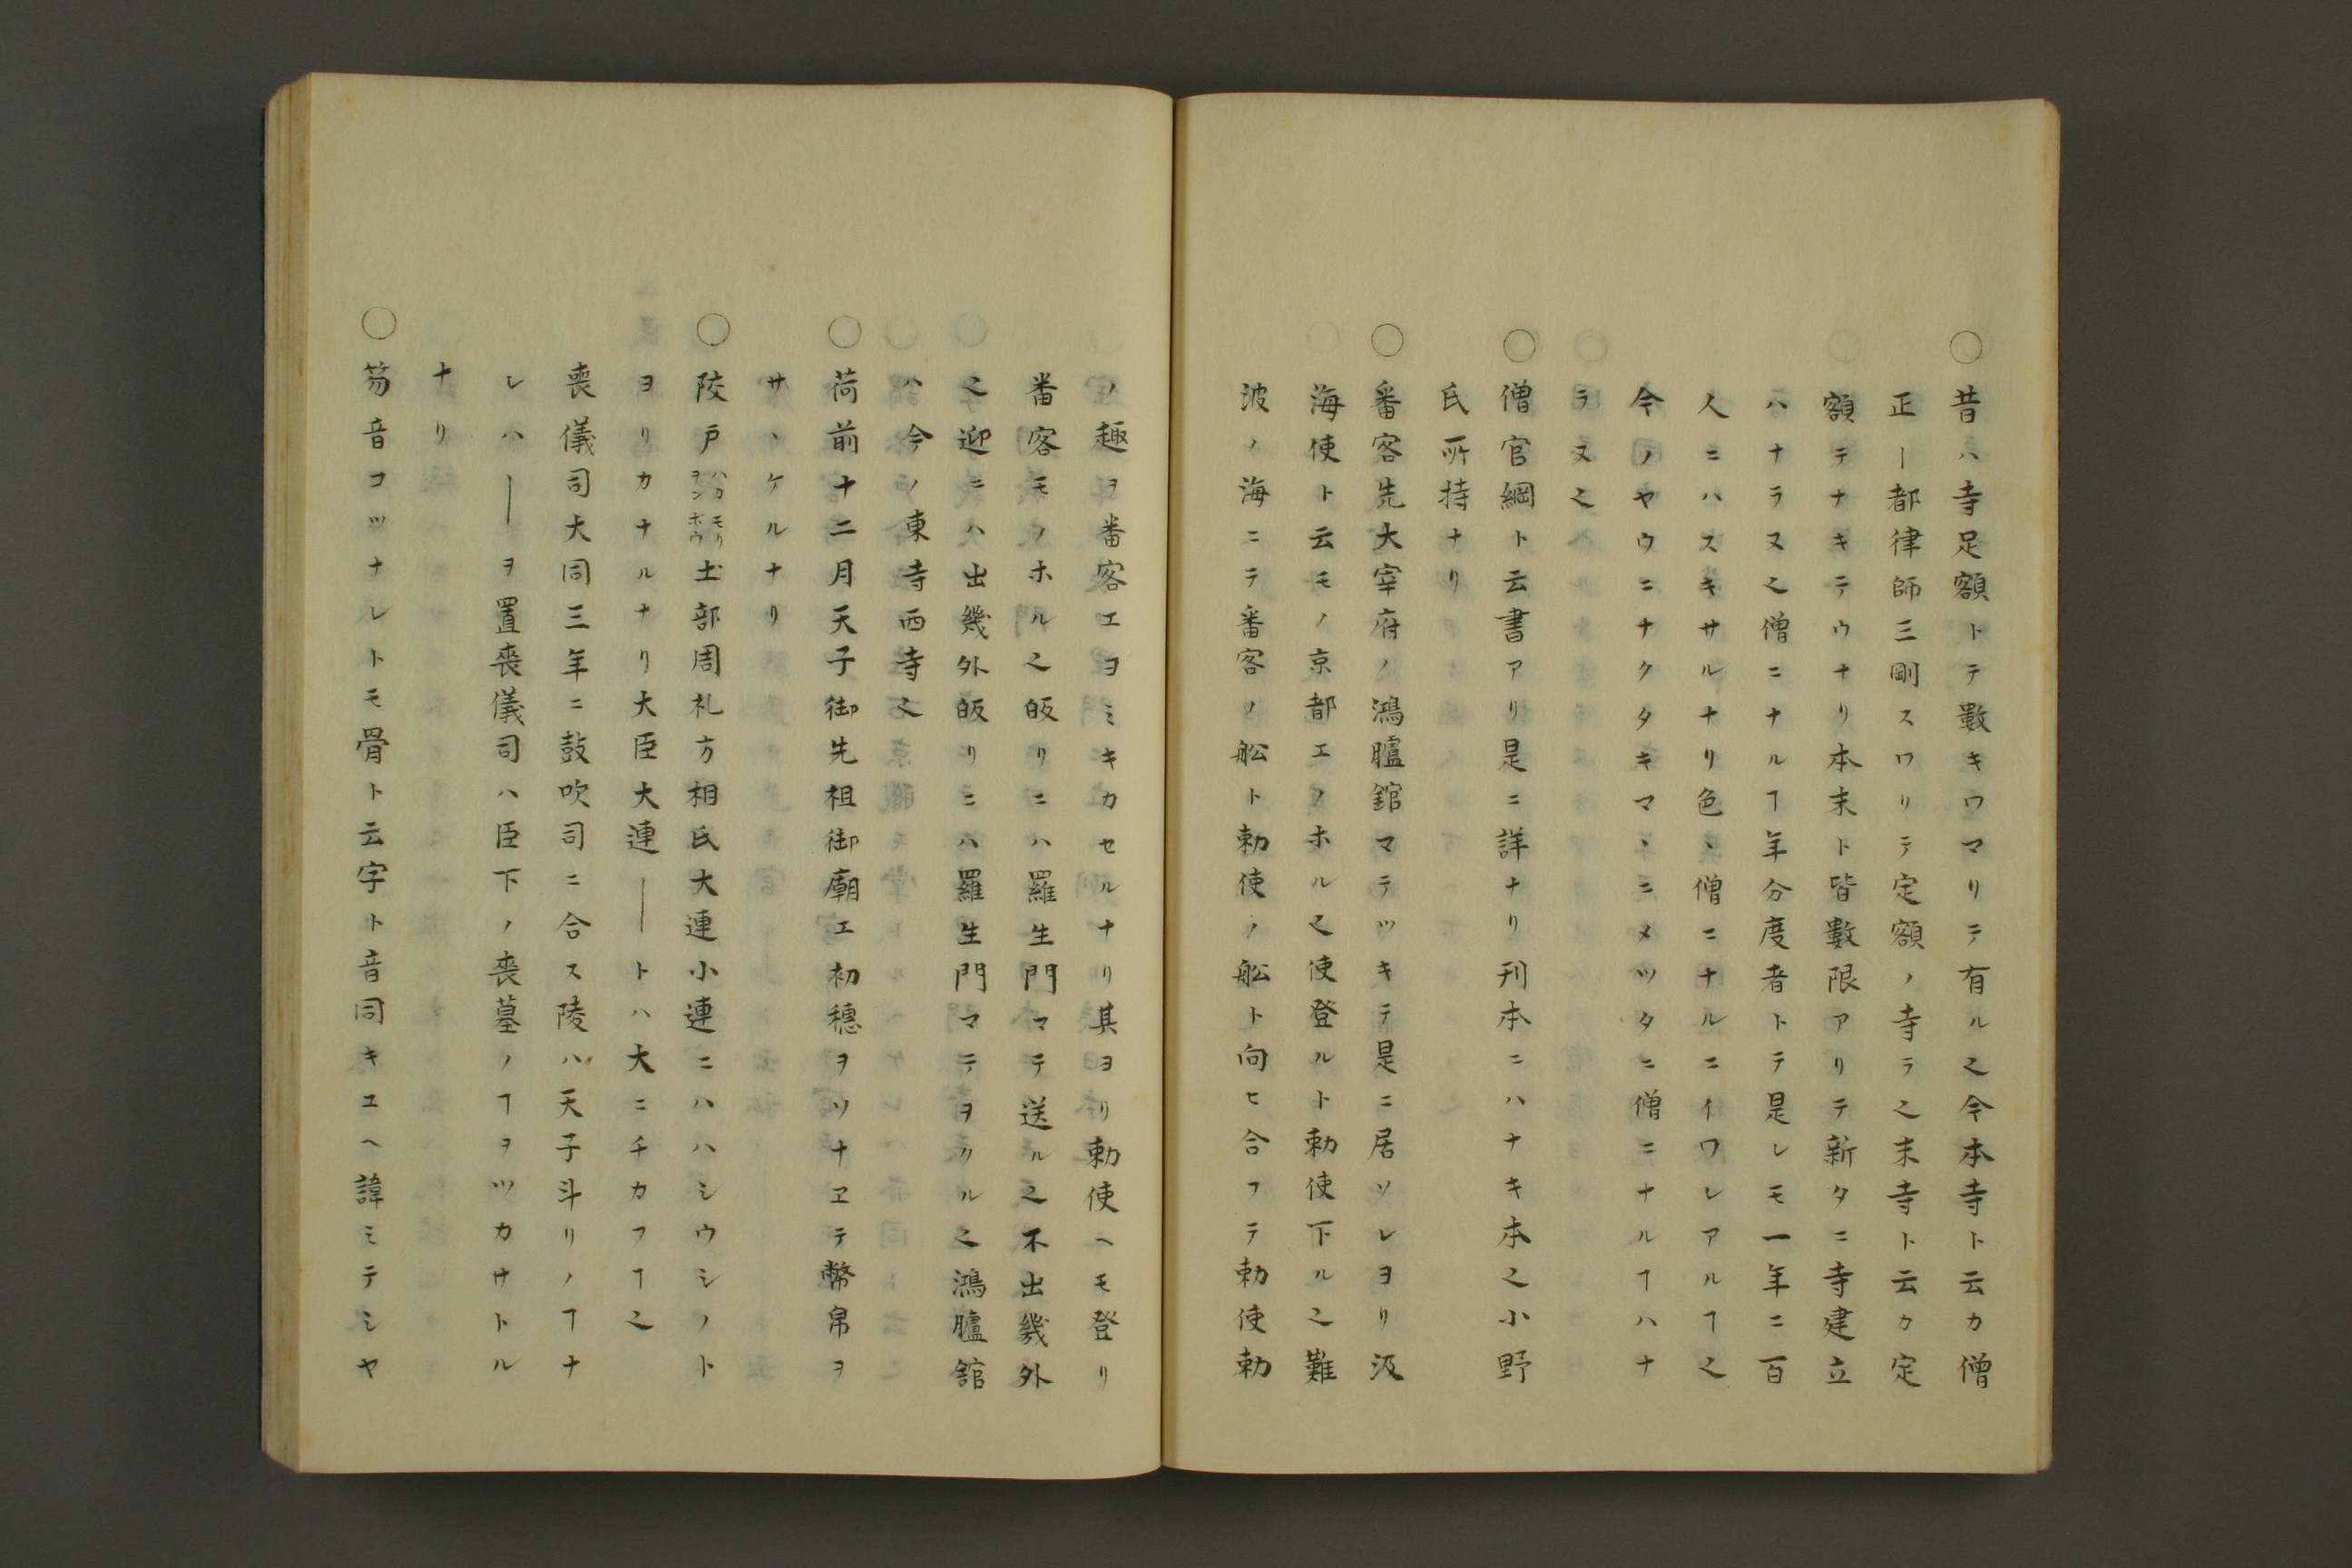 ○昔ハ寺足額トテ數キワマリテ有ル之今本寺ト云カ僧
正ー都律師三剛スワリテ定額ノ寺ラ之末寺ト云カ定
額テナキテウナリ本末ト皆數限アリテ新タニ寺建立
ハナラヌ之僧ニナルヿ年分度者トテ是レモ一年ニ百
人ニハスキサルナリ色々僧ニナルニイワレアルヿ之
今ノヤウニナクタキマヽニメツタニ僧ニナルヿハナ
ラヌ之
○僧官綱ト云書アリ是ニ詳ナリ刊本ニハナキ本之小野
氏所持ナリ
○番客先大宰府ノ鴻臚舘マテツキテ是ニ居ソレヨリ汲
海使ト云モノ京都エノホル之使登ルト勅使下ル之難
波ノ海ニテ番客ノ舩ト勅使ノ舩ト向ヒ合フテ勅使勅
ノ趣ヲ番客エヨミキカセルナリ其ヨリ勅使ヘモ登リ
番客モノホル之皈リニハ羅生門マテ送ル之不出畿外
之迎ニハ出畿外皈リニハ羅生門マテヲクル之鴻臚舘
ハ今ノ東寺西寺之
○荷前十二月天子御先祖御廟エ初穗ヲソナヱテ幣帛ヲ
サヽケルナリ
○陵戸ハカモリヲンボウ土部周礼方相氏大連小連ニハハシウシノト
ヨリカナルナリ大臣大連――トハ大ニチカフヿ之
喪儀司大同三年ニ鼓吹司ニ合ス陵ハ天子斗リノヿナ
レハ――ヲ置喪儀司ハ臣下ノ喪墓ノヿヲツカサトル
ナリ
○笏音コツナレトモ骨ト云字ト音同キユヘ諱ミテシヤ